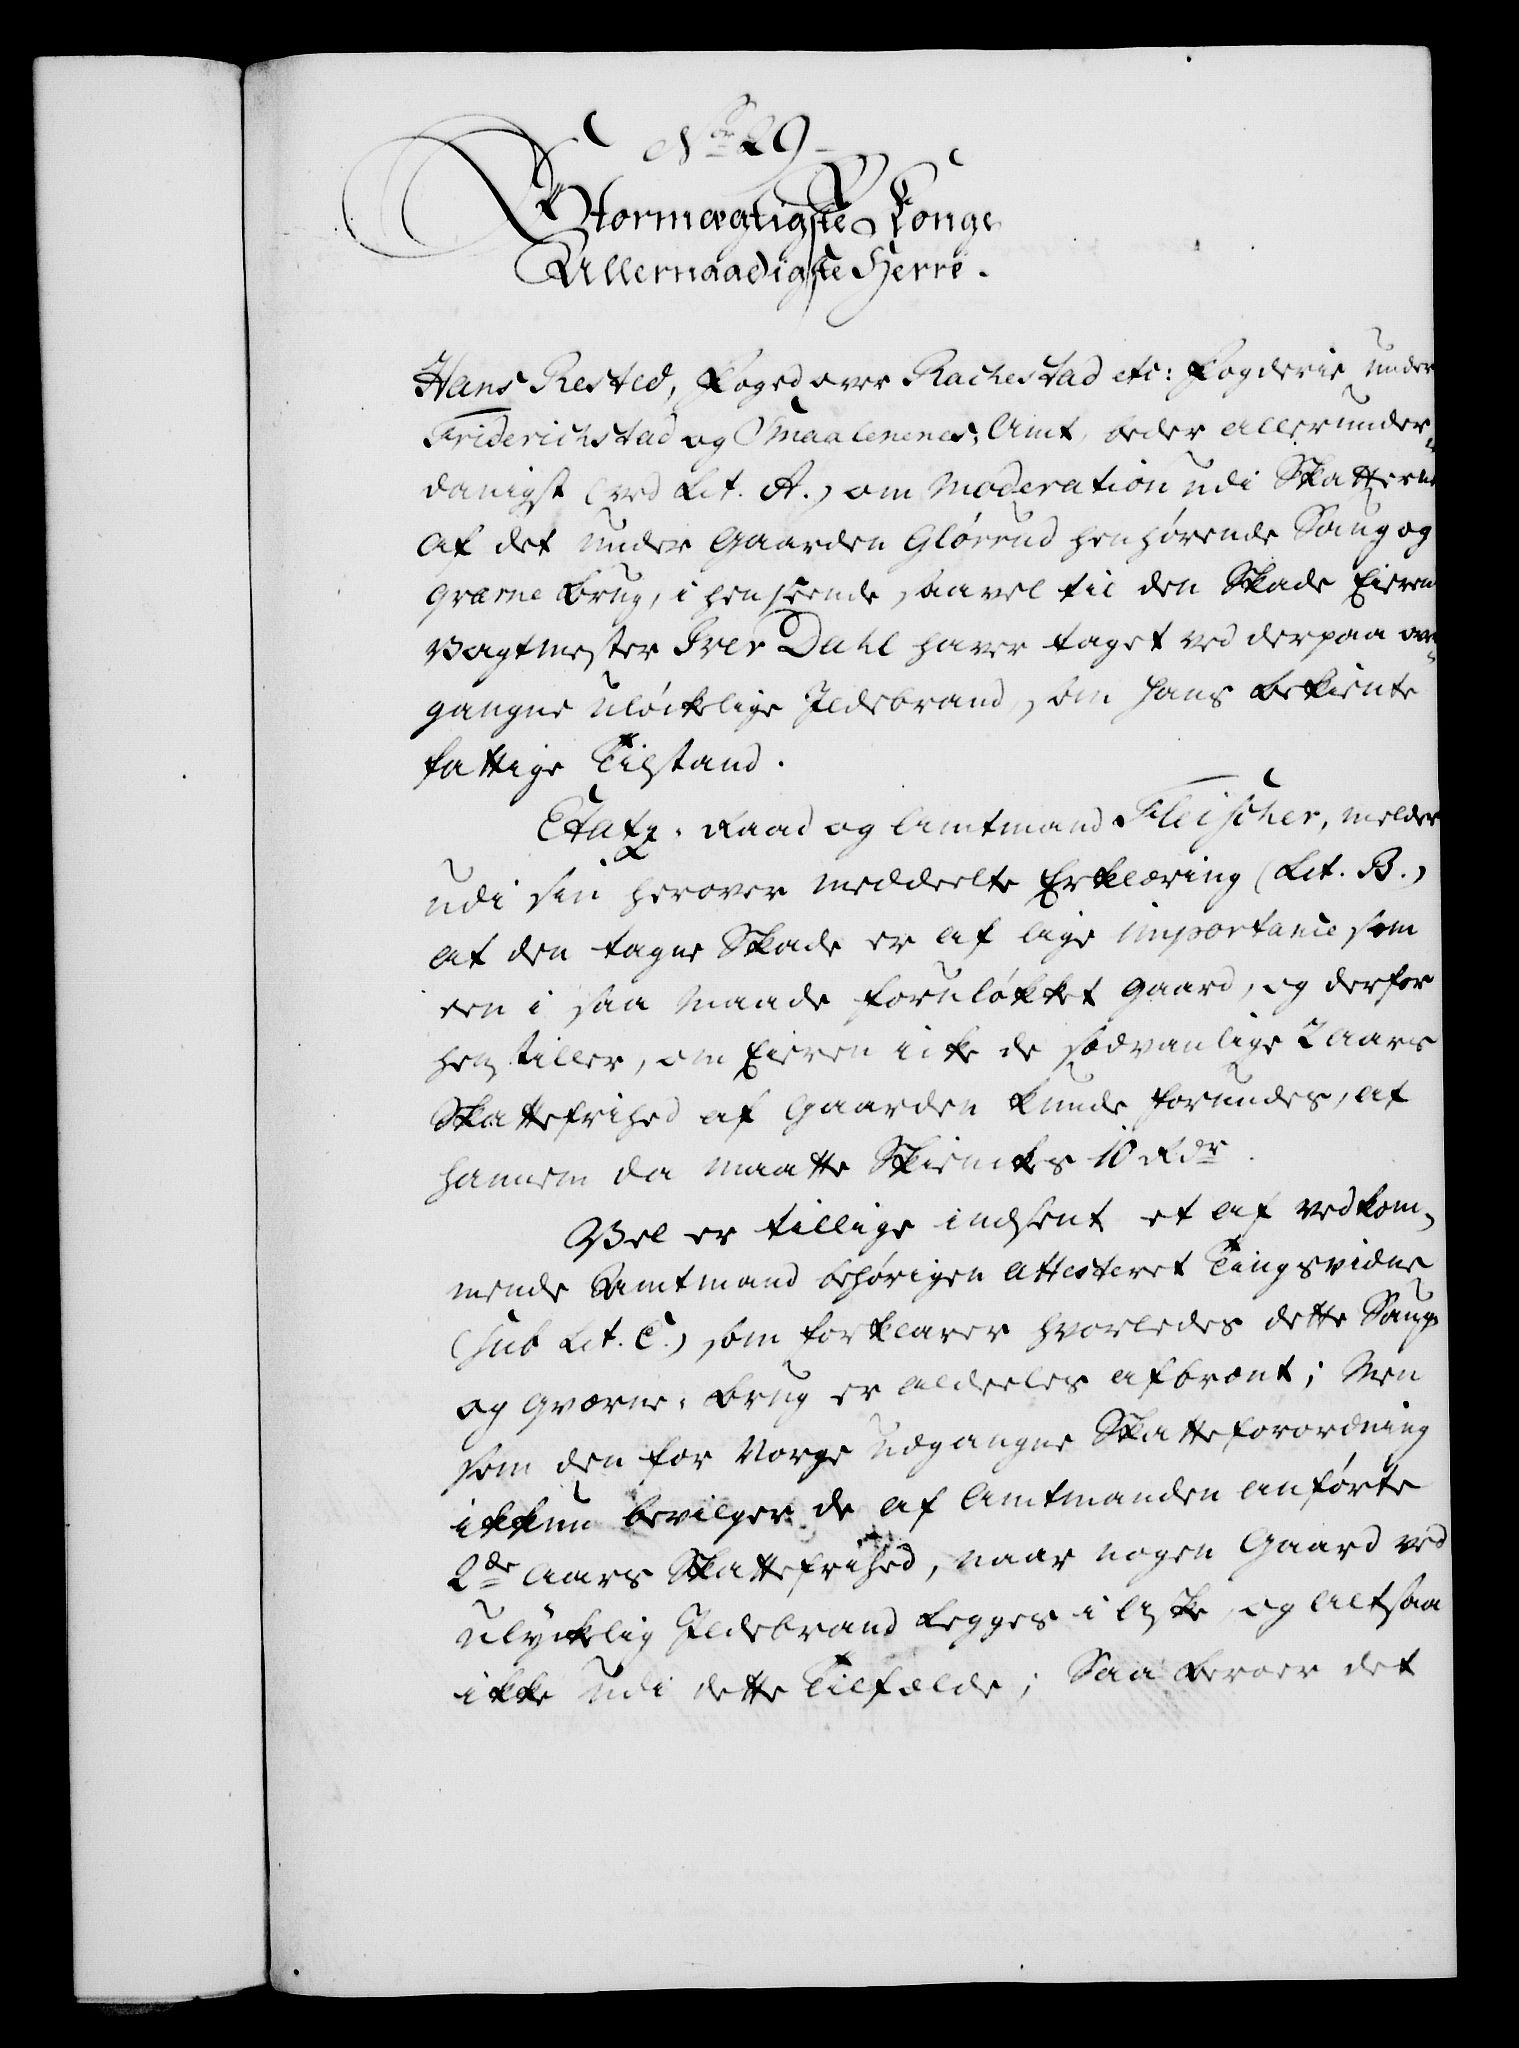 No 29
Stormægtigste Konge
Allernaadigste Herre.
Hans Rested, Foged over Rachestad etc: Fogderie under
Friderichstad og Smaalenenes Amt, beder allerunder-
danigst (ved Lit. A.) om Moderation udi Skatterne
af det under Gaarden Glørrud henhørende Saug og
Qværne Brug, i henseende saavel til den Skade Eieren
Vagtmester Iver Dahl haver taget ved derpaa over-
gangne ulöckelige Ildebrand, som hans bekiente
fattige Tilstand.
Etatz-Raad og Amtmand Fleischer, melder
udi sin herover meddeelte Erklæring (Lit. B.)
at den tagne Skade er af lige importance som
een i saa Maade foruløkket Gaard, og derfor
henstiller, om Eieren icke de sædvanlige 2 Aars
Skattefrihed af Gaarden kunde forundes, at
hannem da maatte Skienckes 10 Rdr.
Vel er tillige indsent et af vedkom-
mende Amtmand behörigen attesteret Tingsvidne
(sub Lit. C.) som forklarer hvorledes dette Saug-
og Qværne-Brug er aldeeles afbrænt; Men
som den for Norge udgangne Skatteforordning
ikkun bevilger de af Amtmanden anförte
2de Aars Skattefrihed, naar nogen Gaard ved
ulyckelig Ildebrand legges i Aske, og altsaa
ikke udi dette Tilfælde; Saa beroer det